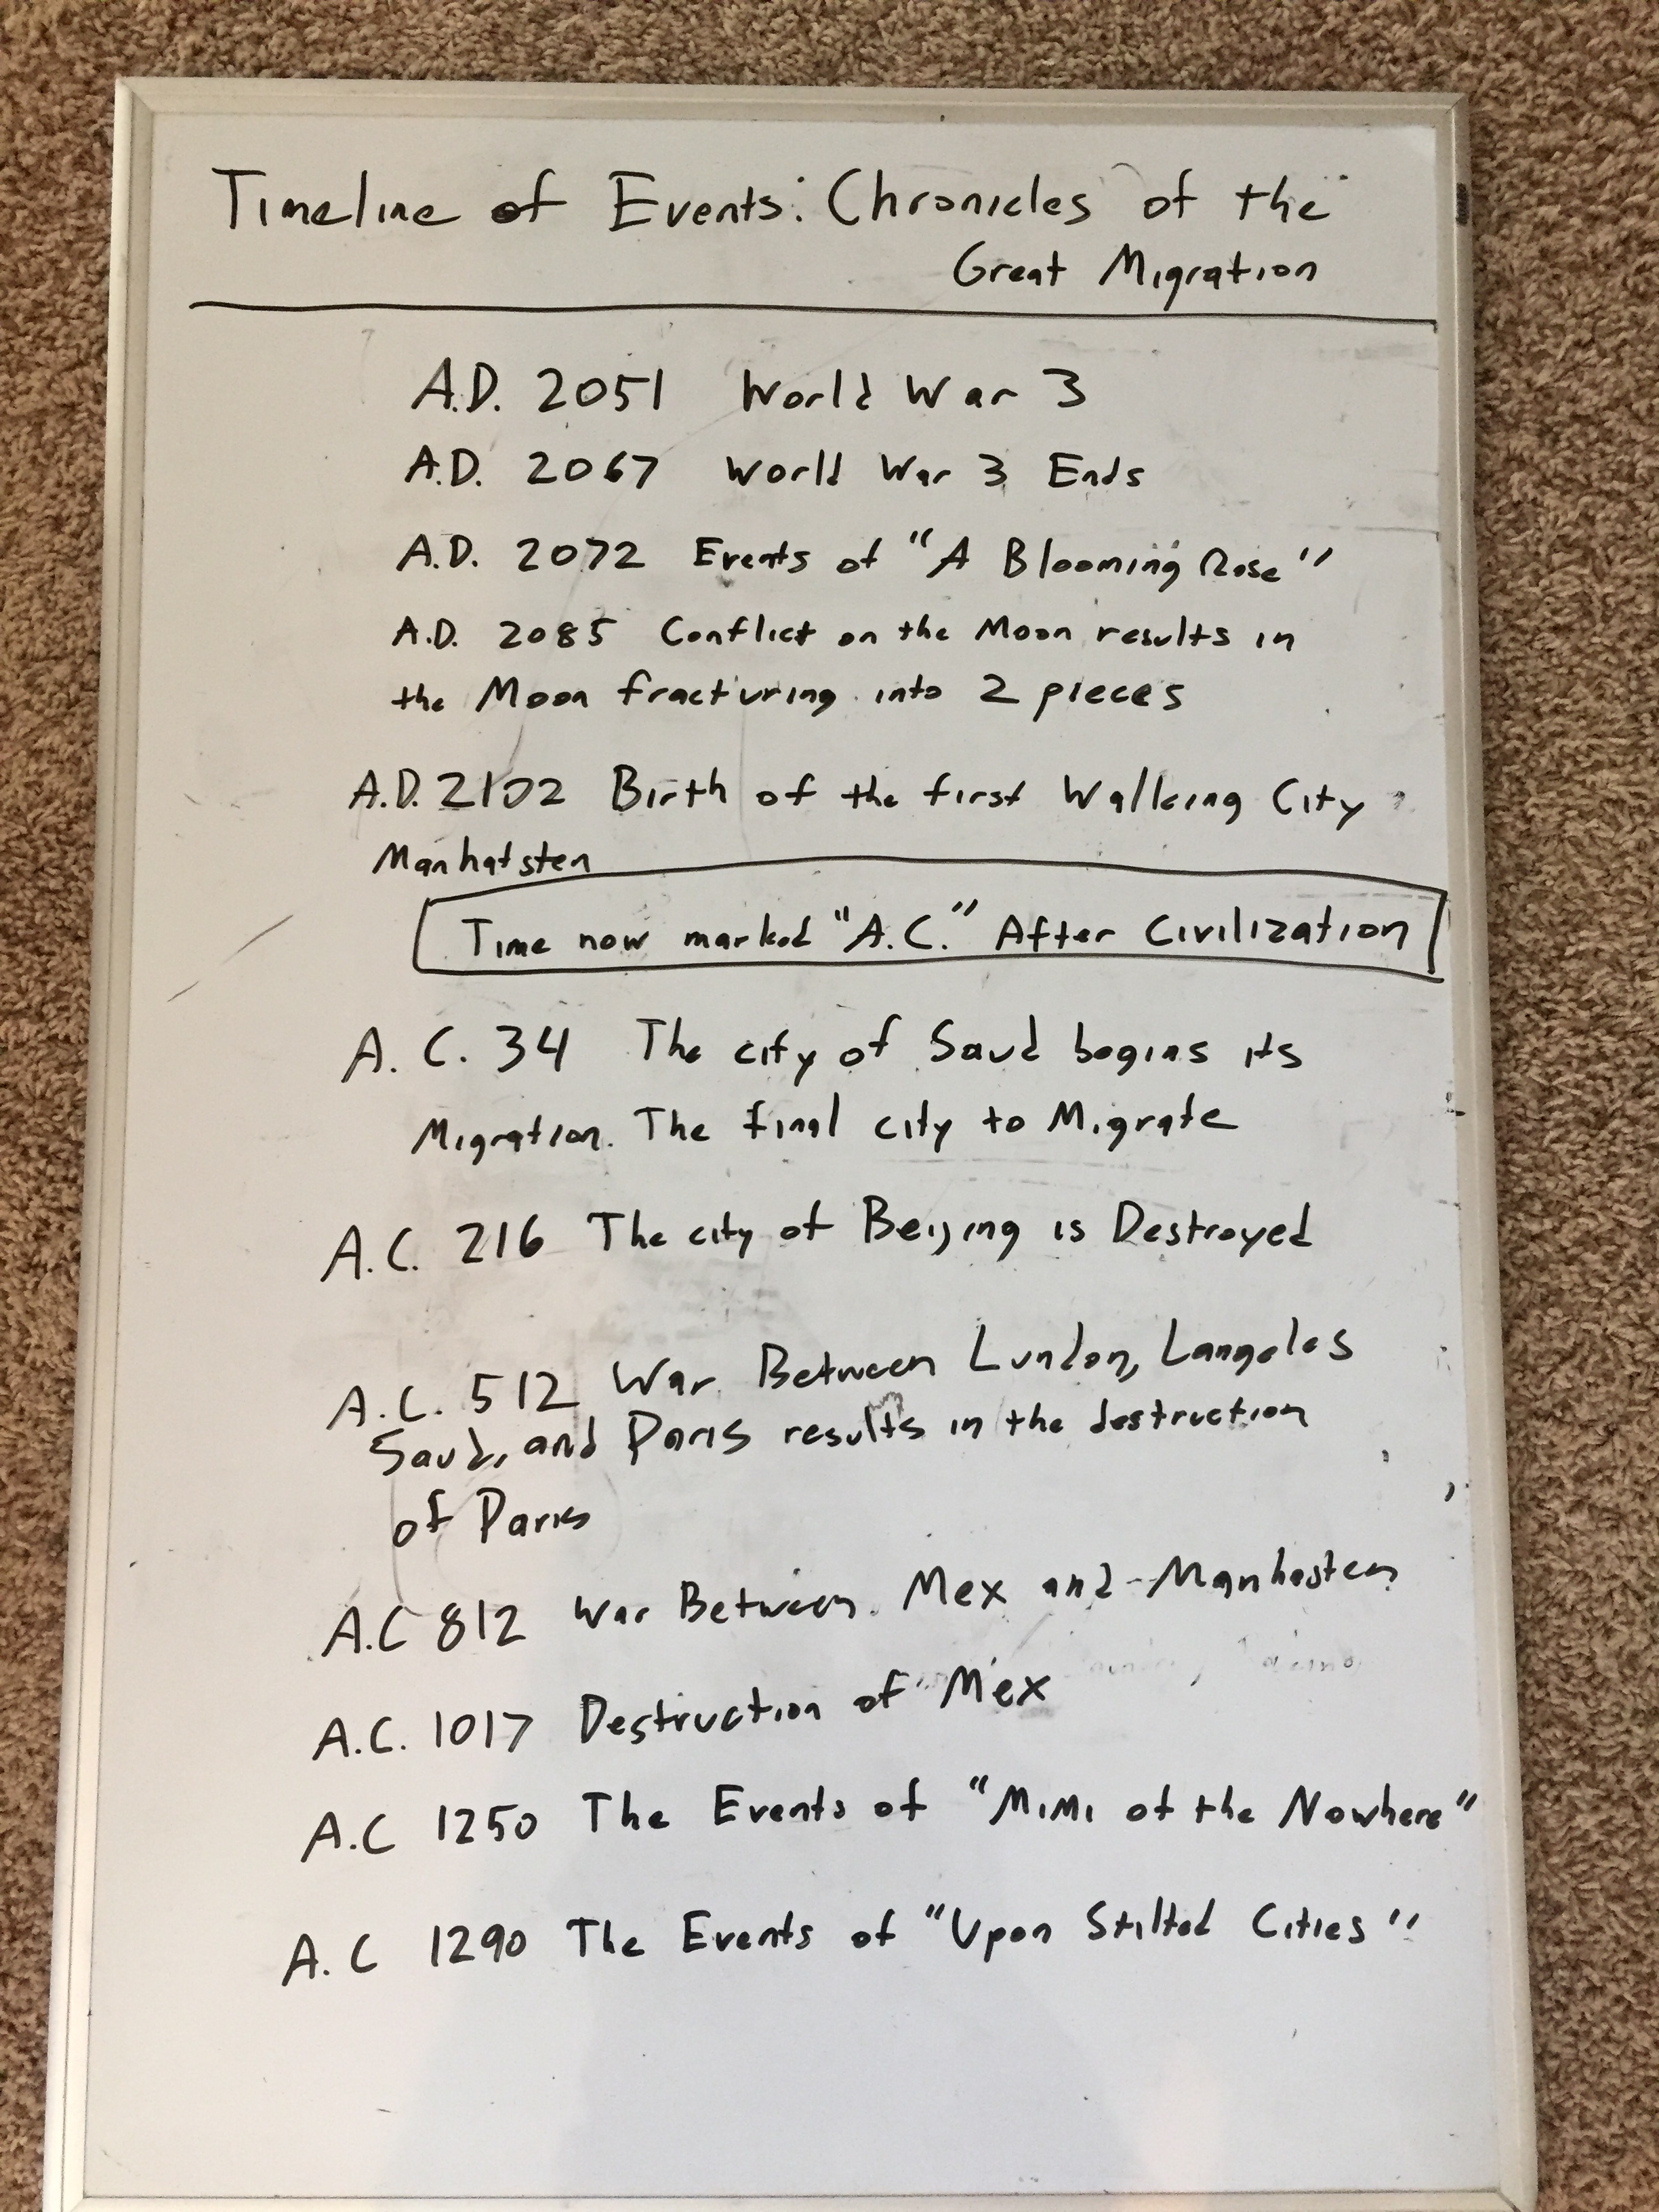 Timeline of Events: Chronicles of the
Great Migration
A.D. 2051 World War 3
A.D. 2067 World War 3 Ends
A.D. 2072 Events of "A Blooming Rose"
A.D. 2085 Conflict on the Moon results in
the Moon fracturing into 2 pieces
A.D. 2102 Birth of the first Walking City
Manhatsten
Time now marked "A.C." After Civilization
A. C. 34 The city of Saud begins its
Migration. The final city to Migrate
A.C. 216 The city of Beijing is Destroyed
A.C. 512 War Between Lundon, Langeles
Saud, and Paris results in the destruction
of Paris
A.C 812 War Between Mex and Manhasten
A.C. 1017 Destruction of Mex
A.C 1250 The Events of "Mimi of the Nowhere"
A.C 1290 The Events of "Upon Stilted Cities"